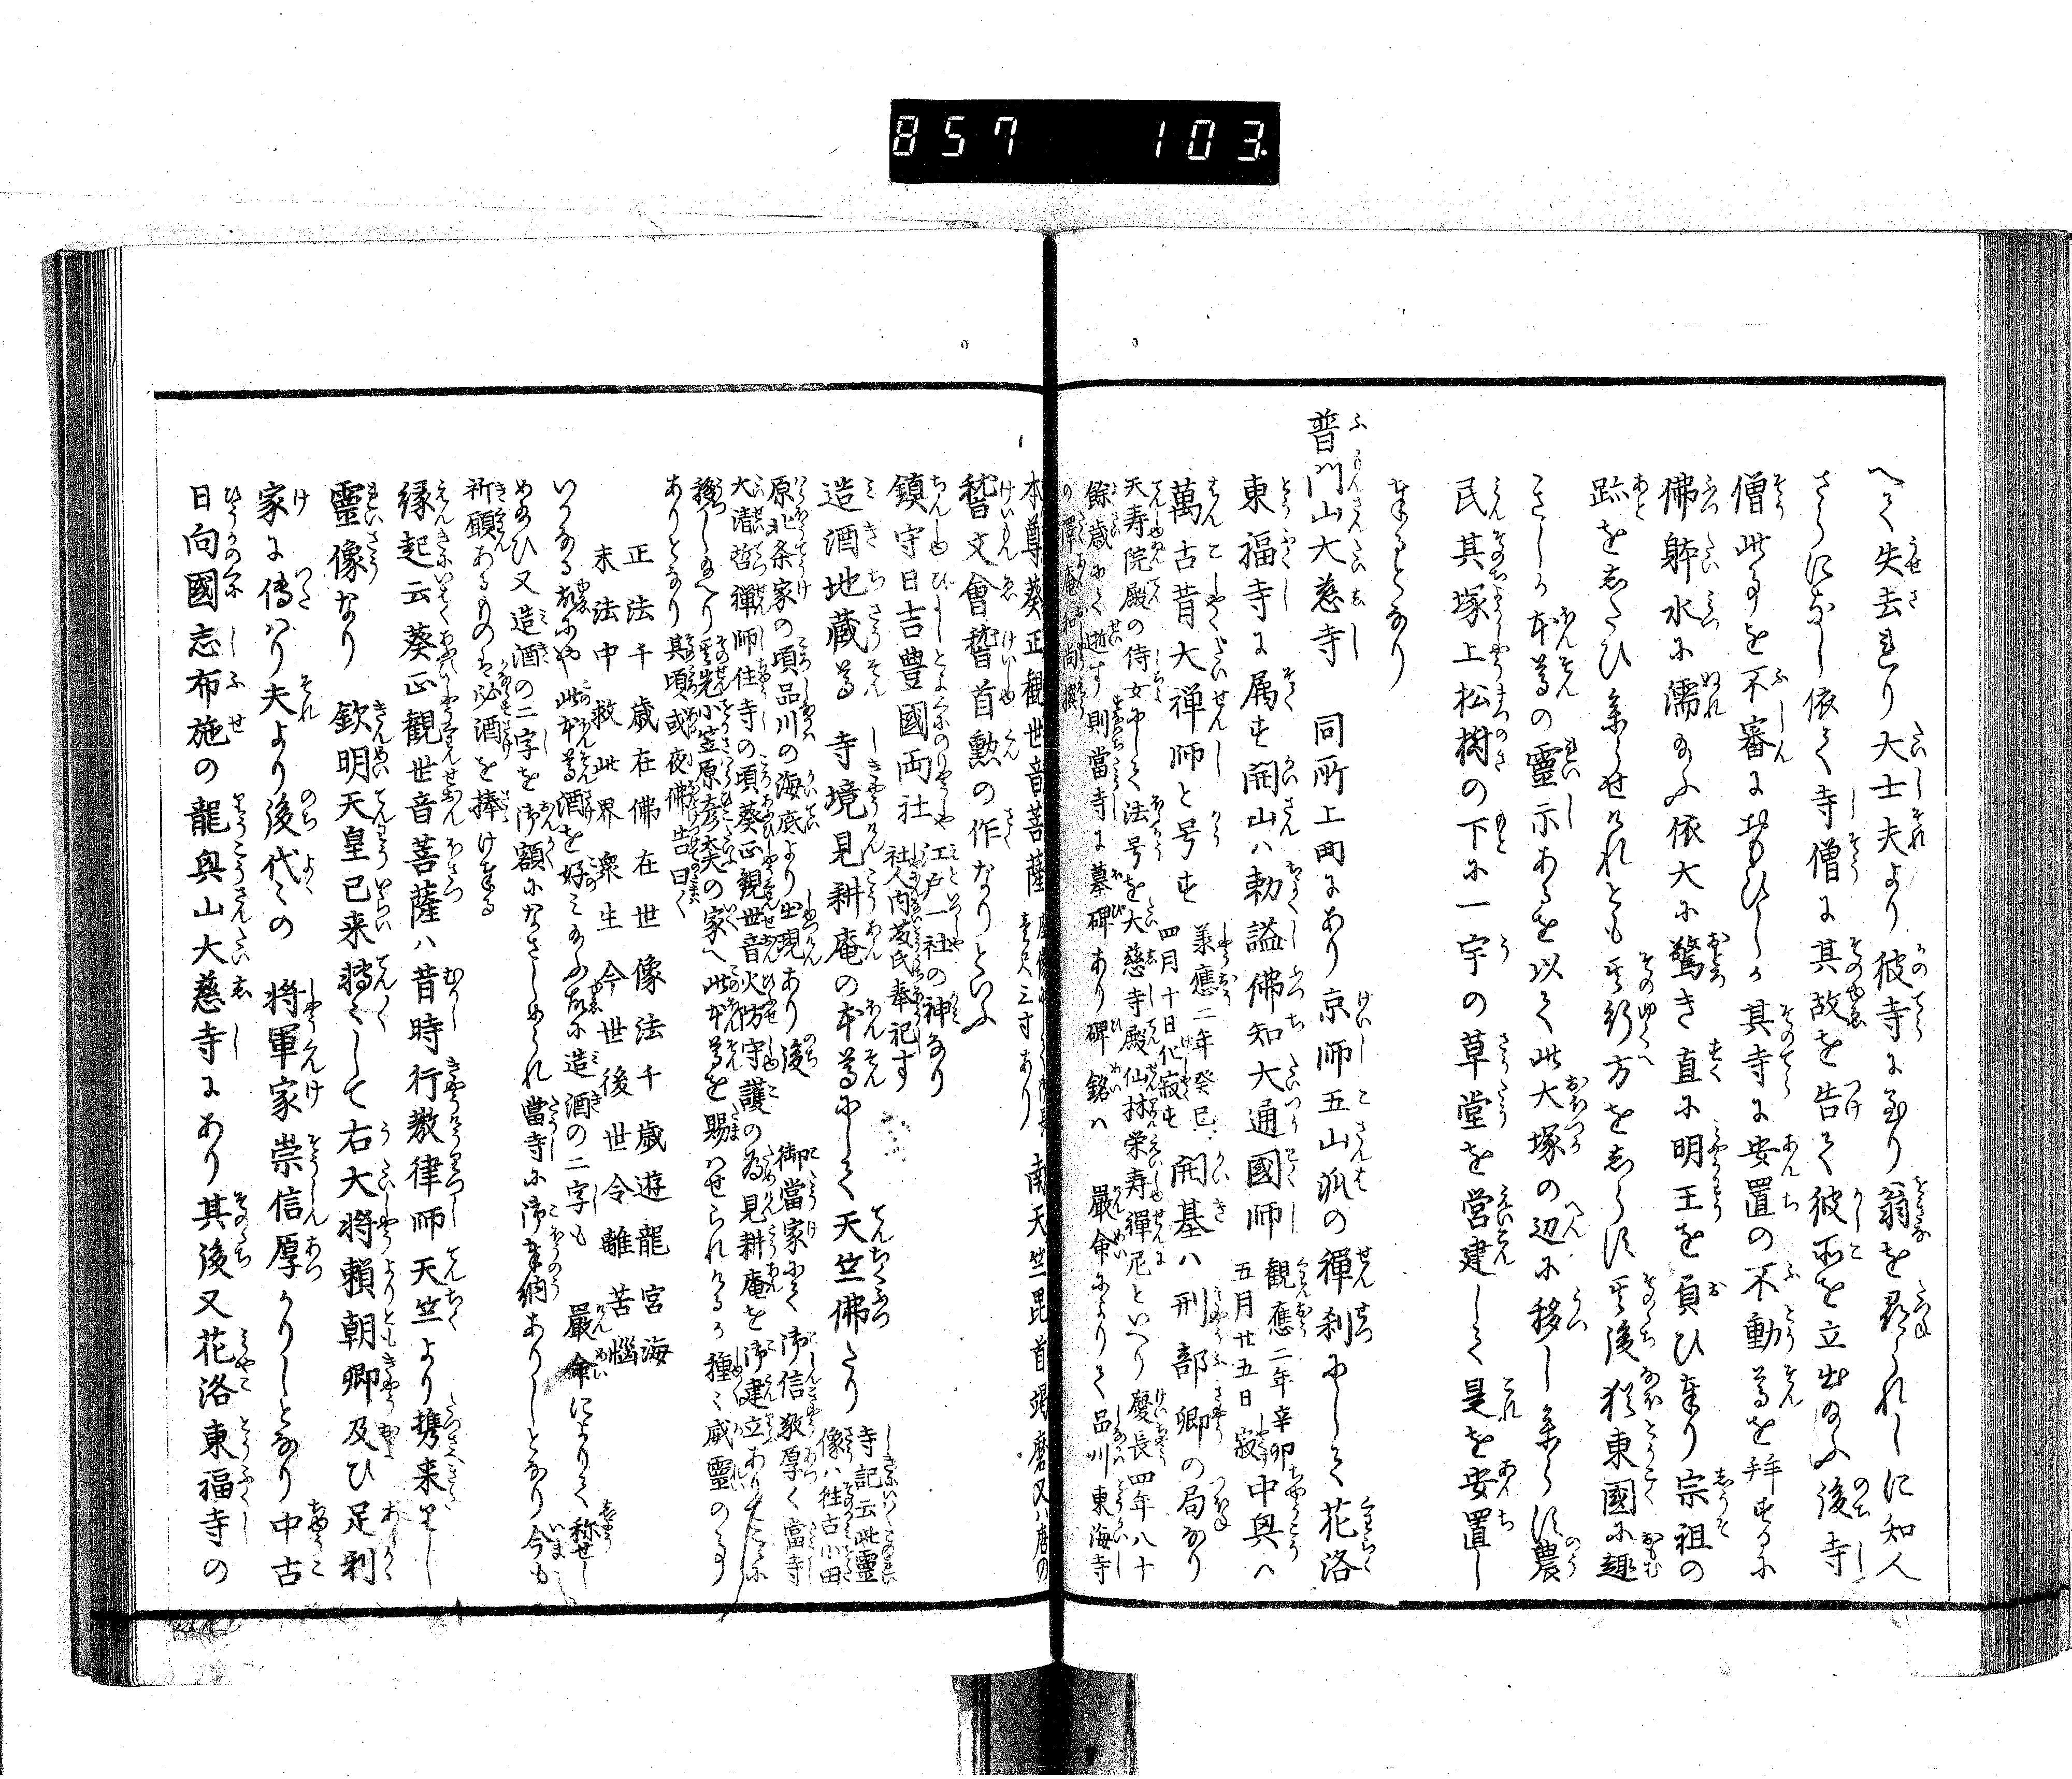 857 103
へて失去ぬり大士夫より彼寺に至り翁を尋られしに知人
さらになし依て寺僧に其故を告て彼所を立出給ふ後寺
僧此事を不審におもひしか其寺に安置の不動尊を拝するに
佛躰水に濡給ふ依大に驚き直に明王を負ひ奉り宗祖の
跡をしたひ參らせけれとも其行方をしらす其後猶東國に趣
きしか本尊の靈示あるを以て此大塚の辺に移し參らす農
民其塚上松樹の下に一宇の草堂を営建して是を安置し
奉るとなり
普門山大慈寺 同所上町にあり京師五山派の禅刹にして花洛
東福寺に属す開山ハ勅謚佛知大通國師 観應二年辛卯五月廿五日寂 中興ハ
萬古昔大禅師と号す 承應二年癸巳四月十日化寂す 開基ハ刑部卿の局なり
天寿院殿の侍女にして法号を大慈寺殿仙林栄寿禅尼といへり慶長四年八十
餘歳にて逝す則當寺に墓碑あり碑銘ハ 嚴命によりて品川東海寺
の澤庵和尚撰
本尊葵正観世音菩薩 三寸あり 南天竺毘首羯磨又ハ唐の
稽文會稽首勲の作なりといふ
鎮守日吉豊國両社 江戸一社の神なり社人内藤氏奉祀す
造酒地蔵尊 寺境見耕庵の本尊にして天竺佛なり 寺記云此靈像ハ往古小田
原北条家の頃品川の海底より出現あり後 御當家にて御信敬厚く當寺
大潜哲禅師住寺の頃葵正観世音火防守護の為見耕庵を御建立ありたふ
授しめへり其先小笠原彦大夫の家へ此本尊を賜ハせられけるか種々威靈の事
ありとなり其頃或夜佛告曰く
正法千歳在佛在世 像法千歳遊龍宮海
末法中救此界衆生 今世後世令離苦惱
いかなる故にや此本尊酒を好ミ給ふ故に造酒の二字も 嚴命によりて称せし
め給ひ又造酒の二字を御額になさしめられ當寺に御奉納ありしとなり今も
祈願あるものは必酒を捧け奉る
縁起云葵正観世音菩薩ハ昔時行教律師天竺より携来りし
靈像なり 欽明天皇已来轉々して右大将賴朝卿及ひ足利
家に傳ハり夫より後代々の 将軍家崇信厚かりしとなり中古
日向國志布施の龍興山大慈寺にあり其後又花洛東福寺の